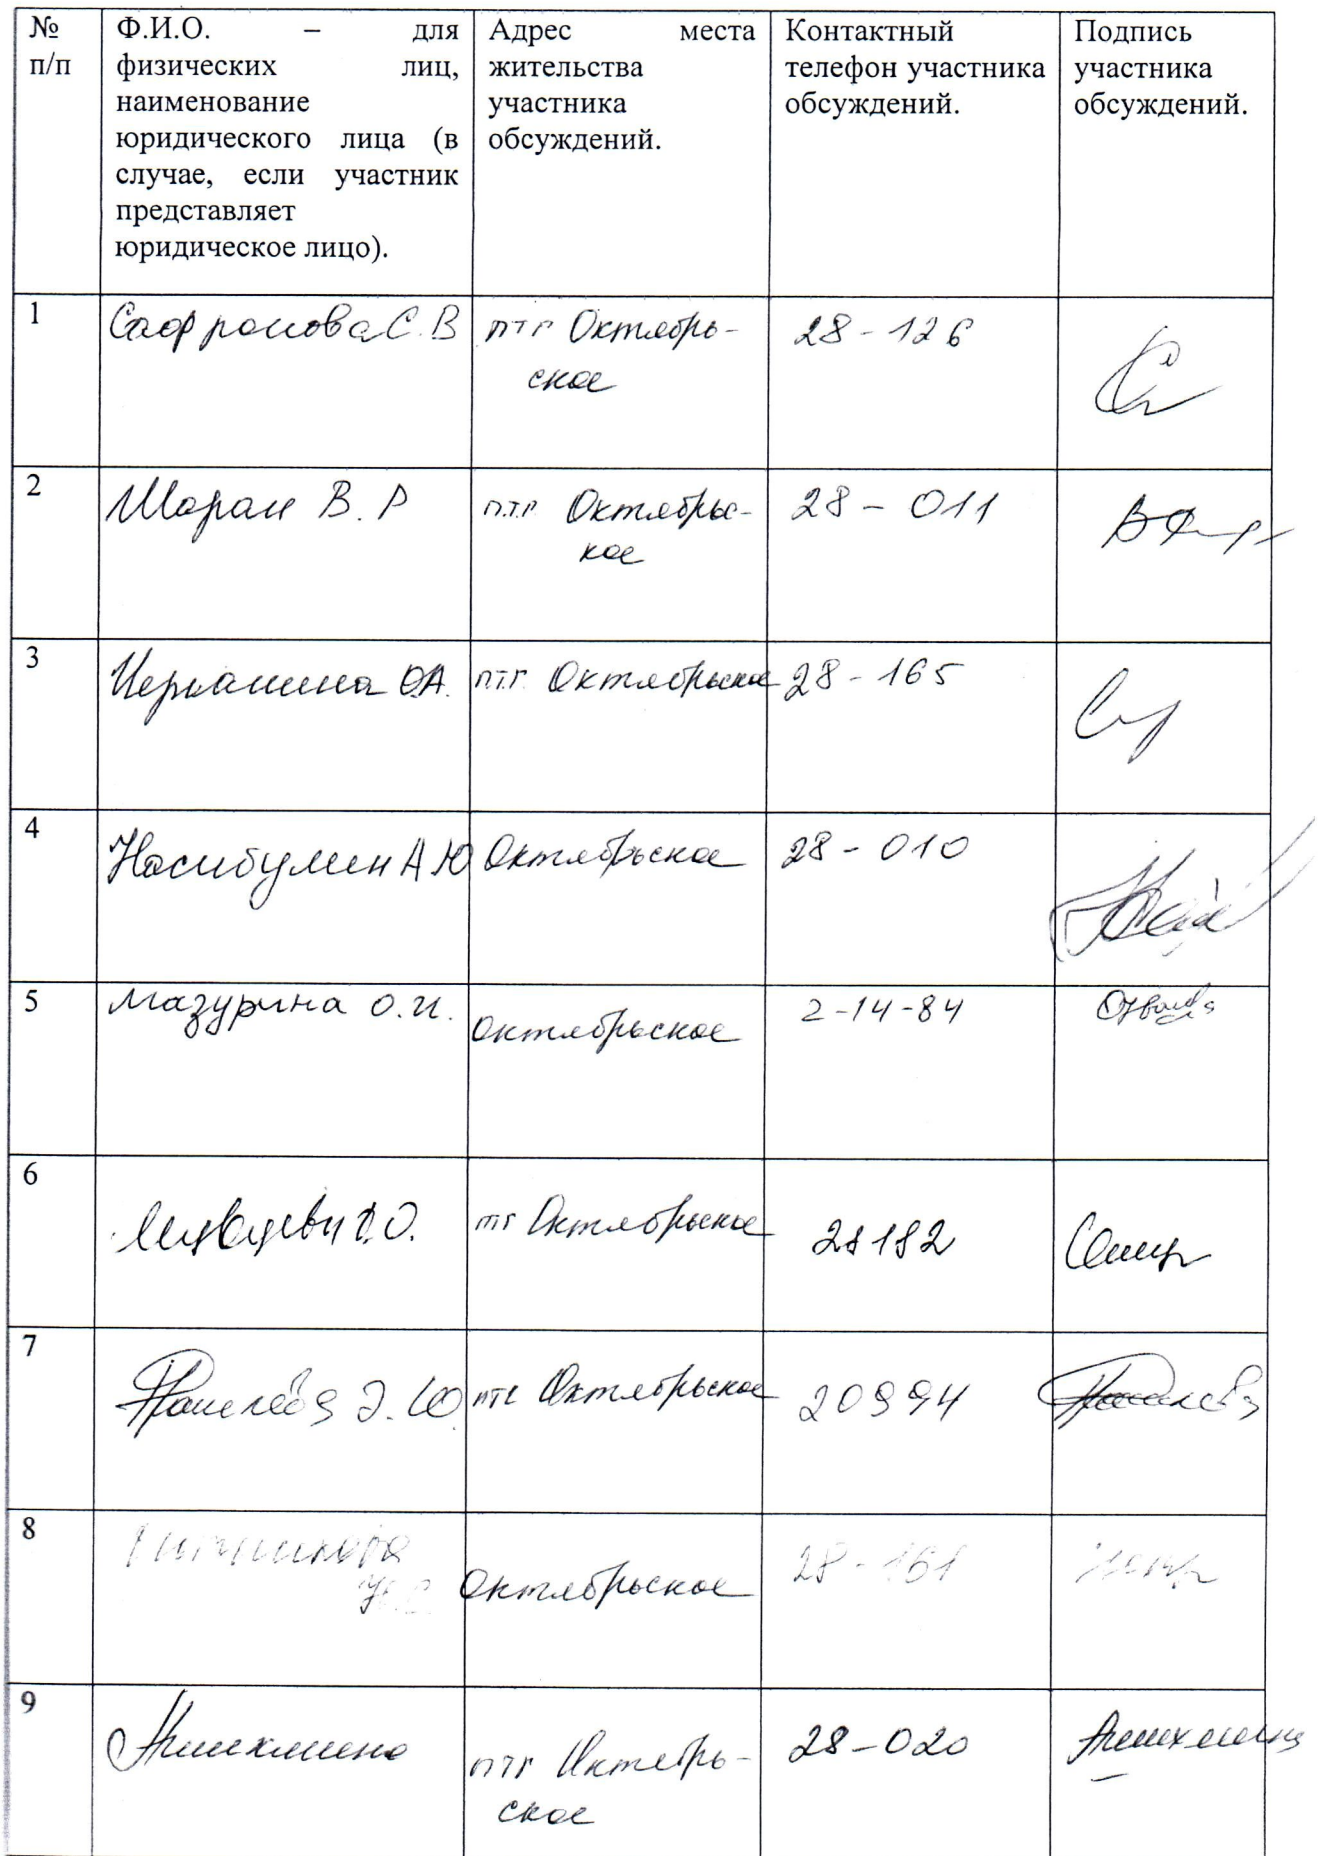 № п/п
Ф.И.О. – для физических лиц, наименование юридического лица (в случае, если участник представляет юридическое лицо).
Адрес места жительства участника обсуждений.
Контактный телефон участника обсуждений.
Подпись участника обсуждений.
1 Сафронова С.В пгт Октябрь-
ское 28-126
2 Шаран В.Р пгт Октябрьс-
кое 28-011
3 О.А. пгт Октябрьское 28-165
4 Насибулин А Ю Октябрьское 28-010
5 Мазурина О.И. Октябрьское 2-14-84
6 пгт Октябрьское 28182
7 Э.Ю. пгт Октябрьское 20994
8 Октябрьское 28-161
9 пгт Октябрь-
ское 28-020